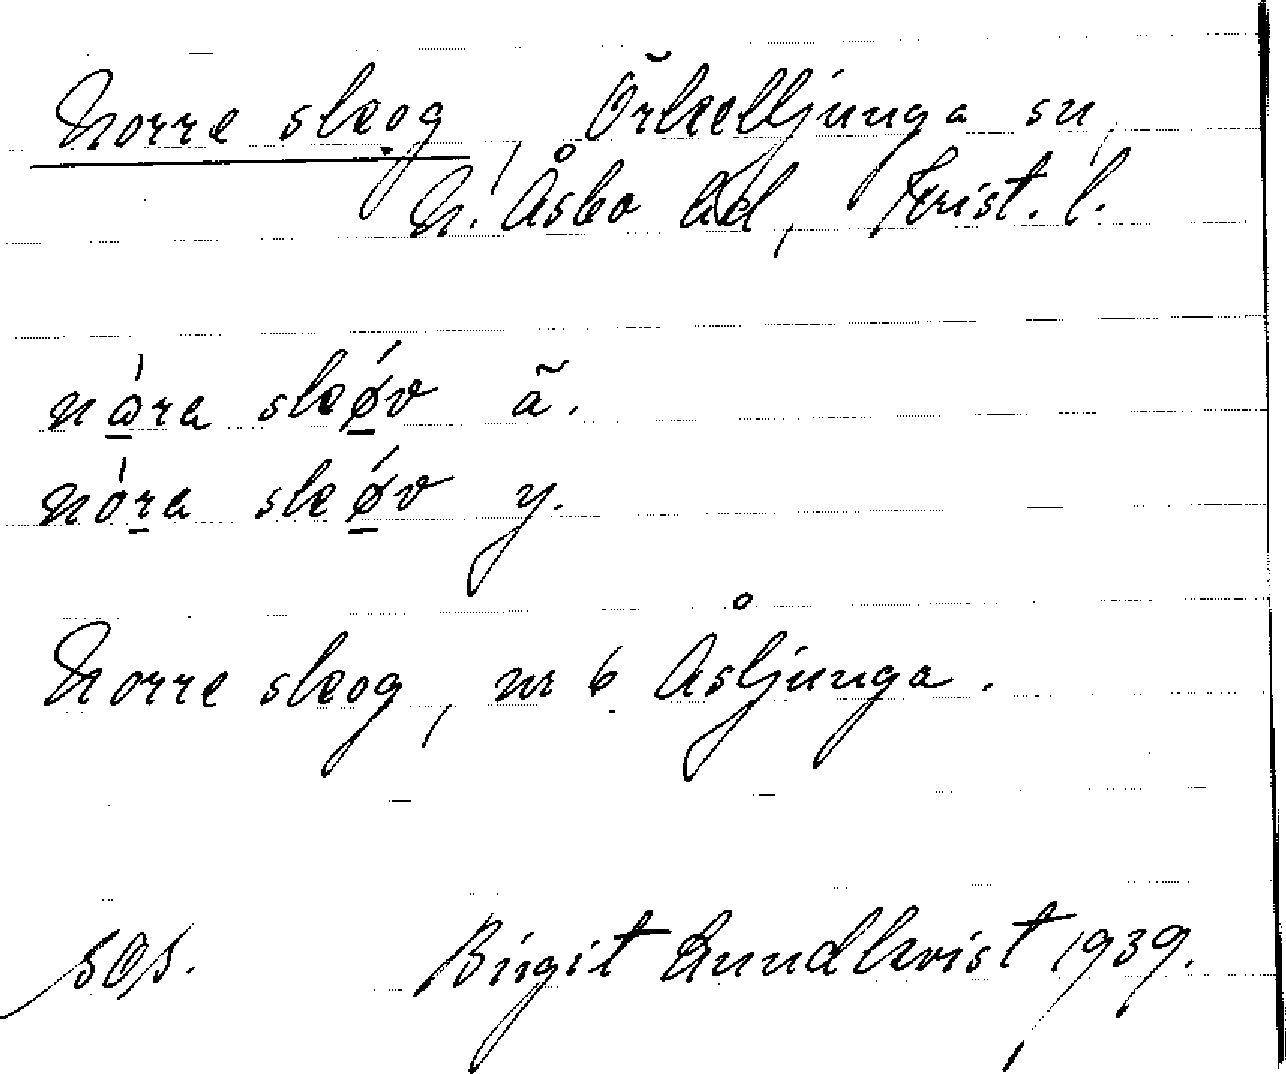 Norre skog, Örkelljunga sn,
N. Åsbo hd, Krist. l.
nåra skǿv ã.
nóra skǿv y.
Norre skog, nr 6 Åsljunga.
Birgit Lundkvist 1939.